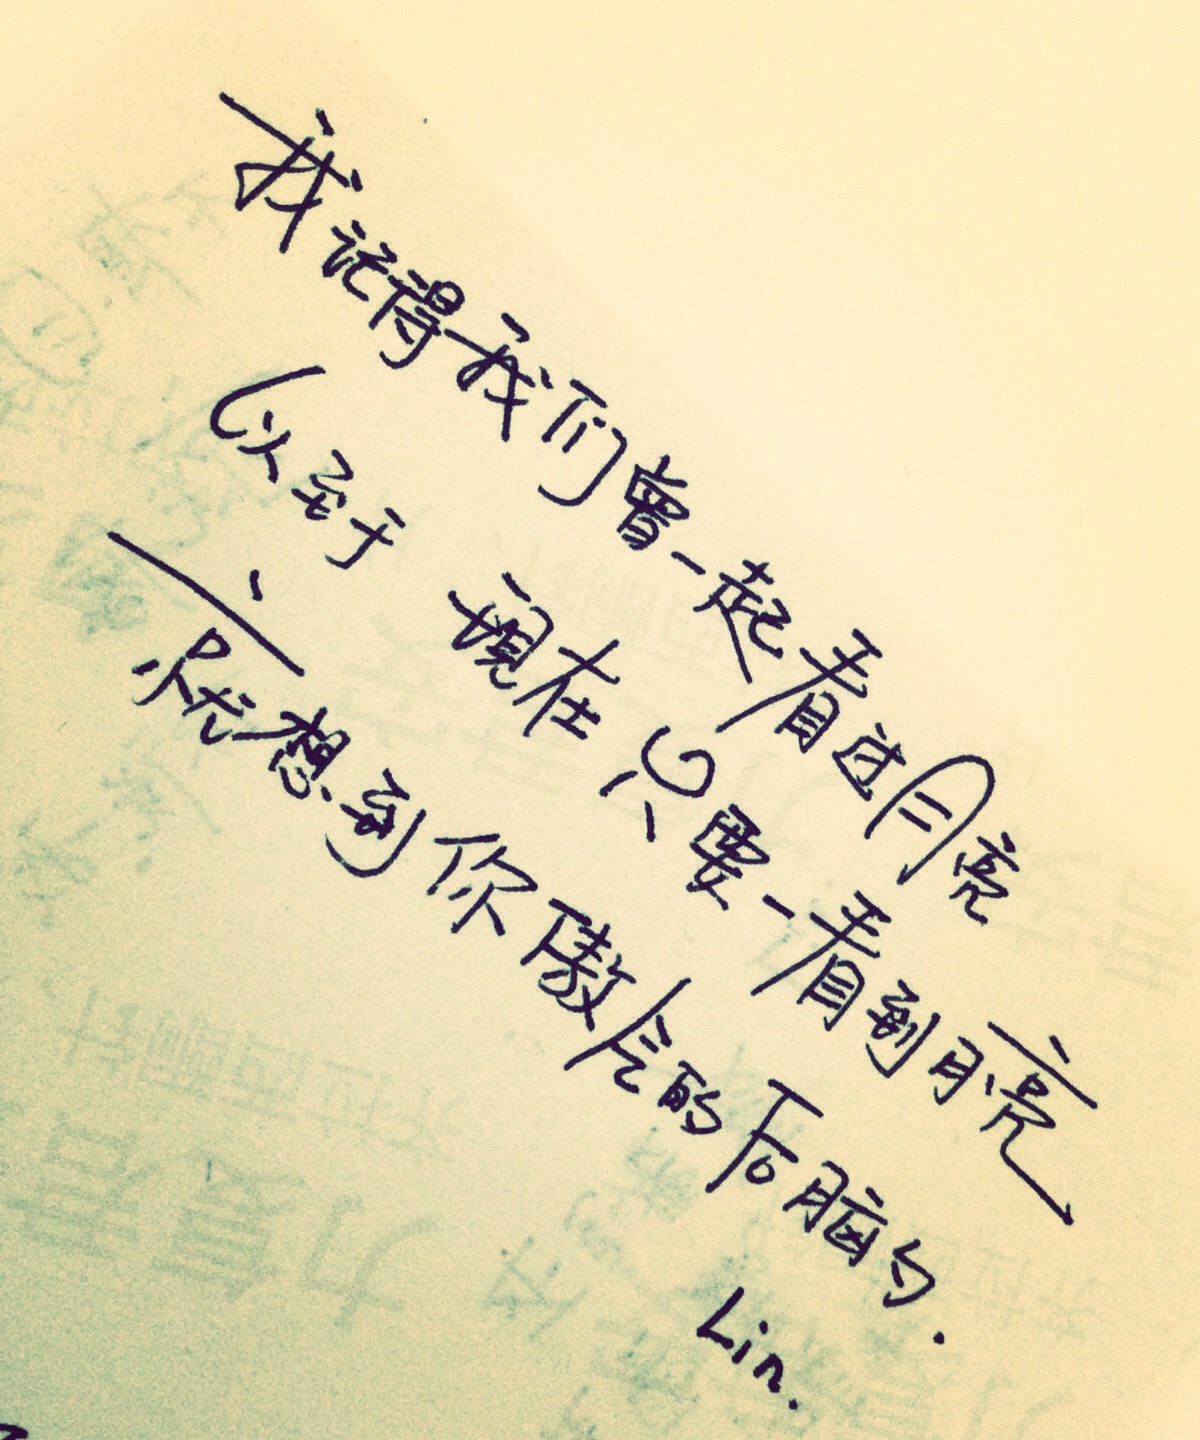 我记得我们曾一起看过月亮
以至于 现在只要一看到月亮
就想到你傲人的后脑勺.
Lin.